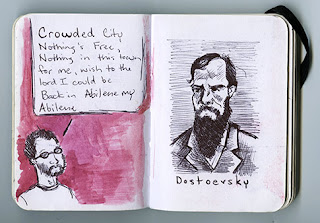 Crowded City
Nothing's Free,
Nothing in this town
for me, wish to the
lord I could be
Back in Abilene my
Abilene
Dostoevsky